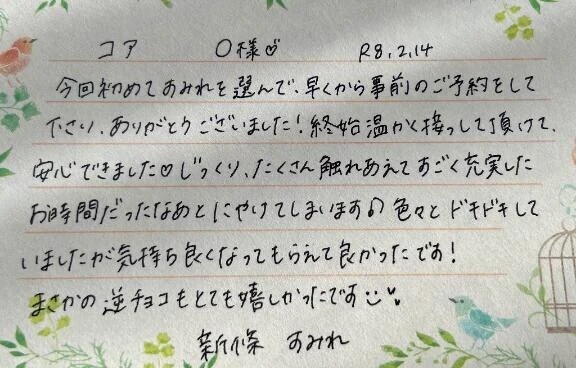 コア 〇様♡ R8.2.14
今回初めてすみれを選んで、早くから事前のご予約をして
下さり、ありがとうございました！終始温かく接っして頂けて、
安心できました♡じっくり、たくさん触れあえてすごく充実した
お時間だったなあとにやけてしまいます♪色々とドキドキして
いましたが気持ち良くなってもらえて良かったです！
まさかの逆チョコもとても嬉しかったです
新條 すみれ